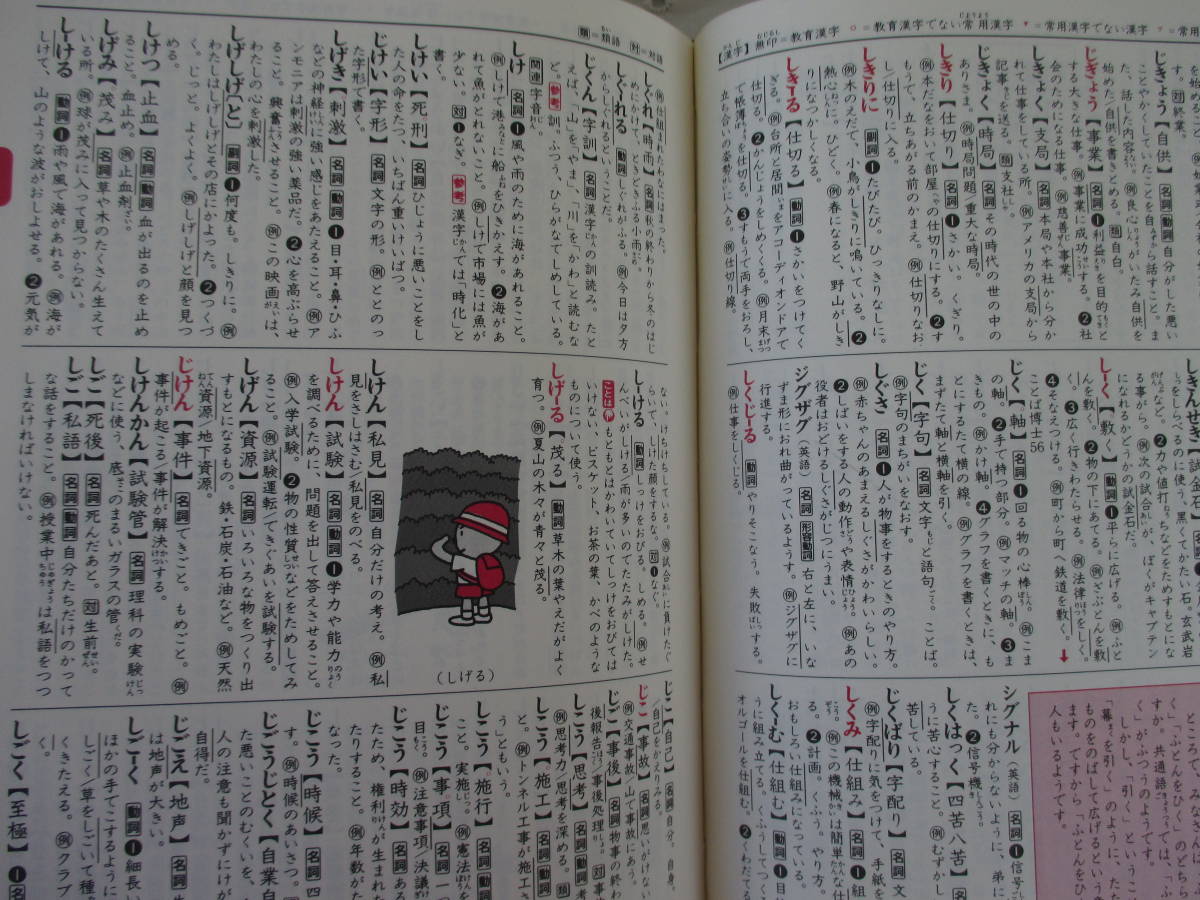 【漢字】 無印=教育漢字 ○=教育漢字でない常用漢字 ▼=常用漢字でない漢字
じきょう【自供】 名詞 動詞 自分がした悪い
ことやかくしていたことを自分から話すこと。ま
た、話した内容。例良心がいたみ自供を
始めた/自供を書きとめる。類自白。
じぎょう【事業】 名詞 ❶利益を目的と
する大きな仕事。例事業に成功する。❷社
会のためにする仕事。例慈善事業。
しきょく【支局】 名詞 本局や本社から分か
れて仕事をしている所。例アメリカの支局から
記事を送る。類支社。
じきょく【時局】 名詞 その時代の世の中の
ありさま。例時局問題/重大な時局。
しきり【仕切り】 名詞 ❶さかい。くぎり。
例本だなをおいて部屋の仕切りにする。❷す
もうで、立ちあがる前のかまえ。例仕切りなお
し/仕切りに入る。
しきりに 副詞 ❶たびたび。ひっきりなしに。
例木のえだで、小鳥がしきりに鳴いている。❷
熱心に。ひどく。例春になると、野山がしき
りになつかしくなる。
しきーる【仕切る】 動詞 ❶さかいをつけてく
ぎる。例台所と居間をアコーディオンドアで
仕切る。❷かんじょうをしめくくる。例月末
で帳簿を仕切る。❸すもうで両手をおろし、
立ち合いの姿勢に入る。例仕切り線。
しきんせき【試金石】
をしらべるのに使う、黒くてかたい石。玄武岩
など。❷力や値打ちなどをためすもとにな
る事がら。例次の試合が、ぼくがキャプテン
になれるかどうかの試金石だ。
しーく【敷く】 動詞 ❶平らに広げる。例ふと
んを敷く。❷物の下にあてる。例ざぶとんを敷
く。❸広く行きわたらせる。例法律をしく。
❹そなえつける。例町から町へ鉄道を敷く。➡
ことば博士56
じく【軸】 名詞 ❶回る物の心棒。例こま
の軸。❷手で持つ部分。例マッチの軸。❸ま
きもの。例かけ軸。❹グラフを書くときに、も
とにするたて横の線。例グラフを書くときは、
まずたて軸と横軸を引く。
じく【字句】 名詞 文字と語句。ことば。
例字句のまちがいをなおす。
しぐさ 名詞 ❶人が物事をするときのやり方。
例赤ちゃんのあまえるしぐさがかわいらしい。
❷しばいをする人の動作や表情。例あの
役者はおどけるしぐさがじつにうまい。
ジグザグ (英語) 名詞 形容動詞 右と左に、いな
ずま形におれ曲がっているようす。例ジグザグに
行進する。
しくじーる 動詞 やりそこなう。失敗する。
例仕事をしくじる。
シグナル (英語) 名詞 ❶信号
れにも分からないように、弟に
た。❷信号機。
しくはっく【四苦八苦】 名
うに苦心すること。例むずかし
苦している。
じくばり【字配り】 名詞 文
例字配りに気をつけて、手紙を
しくみ【仕組み】 名詞 ❶組
例この機械は簡単な仕
❷計画。くふう。やり方。
おもしろい仕組みになっている。
しくーむ【仕組む】 動詞 ❶目
うに組み立てる。くふうしてつく
オルゴールを仕組む。❷くわだてる
類=類語 対=対語
例仕組まれたわなにはまった。
しぐれ【時雨】 名詞 秋の終わりから冬のはじ
めにかけて、ときどきふる小雨。
しぐれる 動詞 しぐれがふる。例今日は夕方
からしぐれた。
じくん【字訓】 名詞 漢字の訓読み。たと
えば、「山」を「やま」、「川」を「かわ」と読むな
ど。参考訓、ふつう、ひらがなでしめしている。
関連字音。
しけ 名詞 ❶風や雨のために海があれること。
例しけで港に船をひきかえす。❷海があ
れて魚がとれないこと。例しけで市場には魚が
少ない。対❶なぎ。参考漢字では「時化」と
書く。
しけい【死刑】 名詞 ひじょうに悪いことをし
た人の命をたつ、いちばん重いけいばつ。
じけい【字形】 名詞 文字の形。例ととのっ
た字形で書く。
しげき【刺激】 名詞 動詞 ❶目・耳・鼻・ひふ
などの神経に強い感じをあたえること。例ア
ンモニアは刺激の強い薬品だ。❷心を高ぶらせ
ること。興奮させること。例この映画は、
わたしの心を刺激した。
しげしげ(と) 副詞 ❶何度も。しきりに。例
わたしはしげしげとその店にかよった。❷つくづ
く。じっと。よくよく。例しげしげと顔を見つ
める。
しけつ【止血】 名詞 動詞 血が出るのを止め
ること。血止め。例止血剤。
しげみ【茂み】 名詞 草や木のたくさん生えて
いる所。例球が茂みに入って見つからない。
しける 動詞 ❶雨や風で海があれる。例海が
しけて、山のような波がおしよせる。❷元気が
ない。けちけちしている。例試合に負けたぐ
らいで、しけた顔をするな。対❶なぐ。
しける 動詞 しっけをおびる。しめる。例せ
んべいがしける/雨が多いのでたたみがしけた。
ことば もともとはかわいていてしっけをおびては
いけない、ビスケット、お茶の葉、かべのような
ものについて使う。
しげーる【茂る】 動詞 草木の葉やえだがよく
育つ。例夏山の木々が青々と茂る。
(しげる)
しけん【私見】 名詞 自分だけの考え。例私
見をさしはさむ/私見をのべる。
しけん【試験】 名詞 動詞 ❶学力や能力
を調べるために、問題を出して答えさせること。
例入学試験。❷物の性質などをためしてみ
ること。例試験運転/てきぐあいを試験する。
しげん【資源】 名詞 いろいろな物をつくり出
すもとになるもの。鉄・石炭・石油など。例天然
資源/地下資源。
じけん【事件】 名詞 できごと。もめごと。例
事件が起こる/事件が解決する。
しけんかん【試験管】 名詞 理科の実験
などに使う、底のまるいガラスの管。
しご【死後】 名詞 死んだあと。対生前。
しご【私語】 名詞 動詞 自分たちだけのかって
な話をすること。例授業中は私語をつつ
しまなければいけない。
じこ【自己】 名詞 自分。自身。
/自己をかえりみる。
じこ【事故】 名詞 思いがけない
例交通事故/山で事故にあう。
じご【事後】 名詞 物事の終わ
後報告/事後処理。対事
しこう【思考】 名詞 動詞 考
例思考力/思考を深める。類
しこう【施工】 名詞 動詞 工
と。例トンネル工事が施工さ
ともいう。
しこう【施行】 名詞 動詞
こと。実施。例憲法
じこう【事項】 名詞 一
目。例注意事項/決議
じこう【時効】 名詞 ある
たため、権利が生まれ
たりすること。例年数がた
なった。
じこう【時候】 名詞 四
す。例時候のあいさつ。
じごうじとく【自業自
た悪いことのむくいを、
人の注意も聞かずにけが
自得だ。
じごえ【地声】 名詞 生
は地声が大きい。
しごーく 動詞 ❶細長い
ほかの手でこするように
しごく/草をしごいて種
くきたえる。例クラブ
く。
しごく【至極】 ❶名